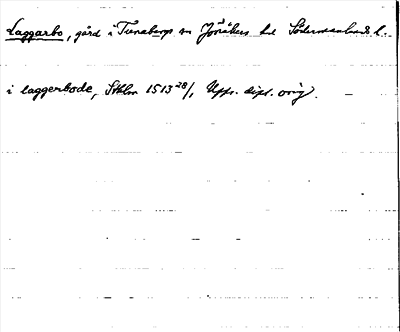 Laggarbo, gård i Tunabergs sn Jönåkers hd Södermanlands l.
i laggerbode, Sthlm 1513 28/1, Upps. dipl. orig.